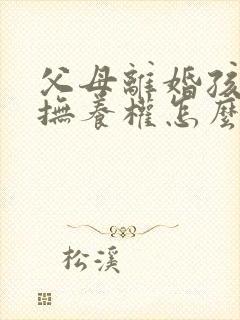 父母離婚孩
撫養權怎麼
松溪